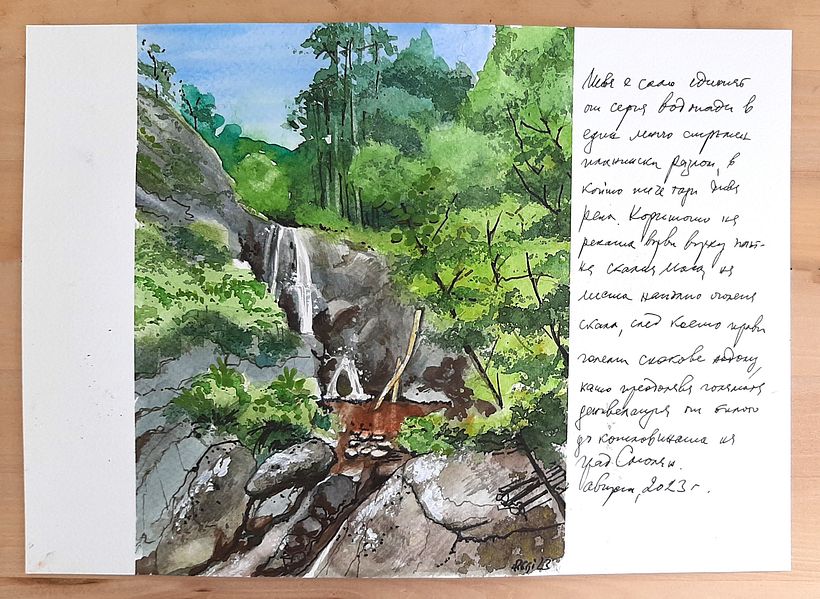 е само единият
от серия водопади в
една много стръмен
планински разлом, в
който тече тази
река. Коритото на
реката върви върху плът-
на скална маса, на
места напълно оголена
скала, след което прави
големи скокове надолу,
като преодолява голямата
денивелация от билото
до котловината на
град Смолян.
август, 2023 г.